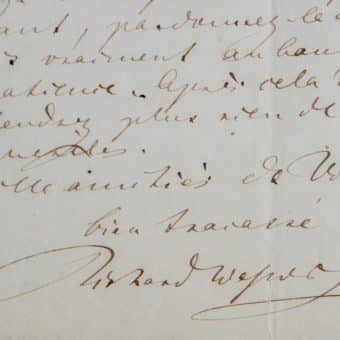 ant, pardonnez-le
vraiment au bou
atience. Après cela
tendrez plus rien de
mille amitiés de V
bien tracassé
Richard Wagner